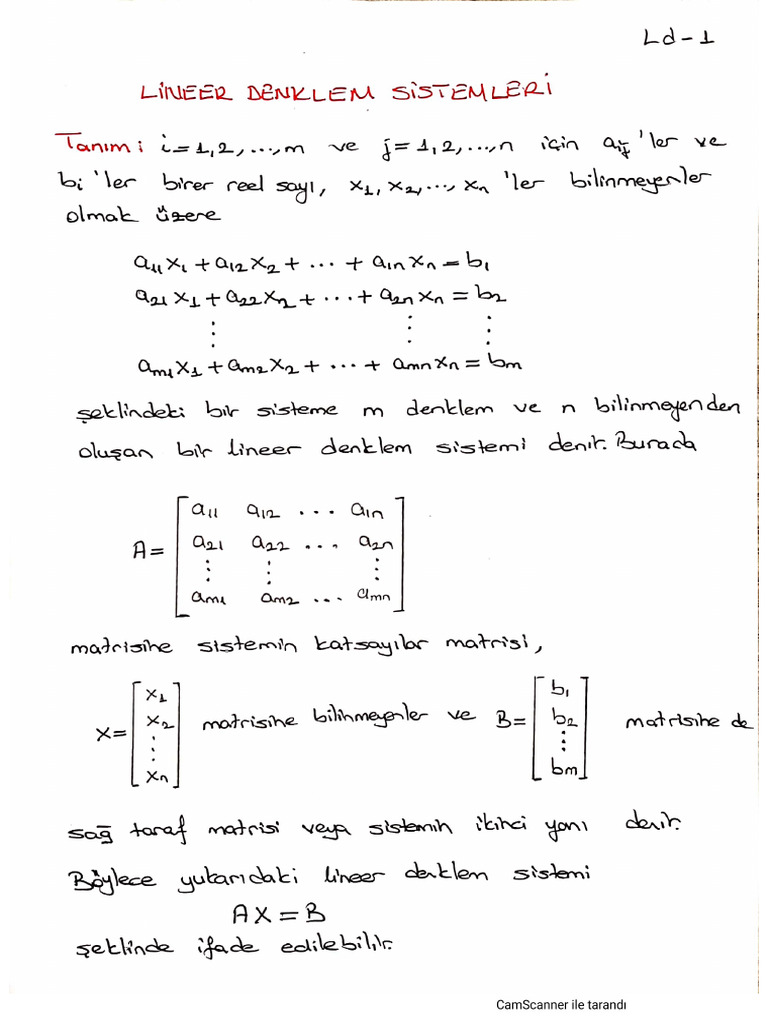 Ld-1
LİNEER DENKLEM SİSTEMLERİ
Tanım: i=1,2,...,m ve j=1,2,...,n için aij'ler ve
bi'ler birer reel sayı, x1, x2, ..., xn'ler bilinmeyenler
olmak üzere
a11x1 + a12x2 + ... + a1nxn = b1
a21x1 + a22x2 + ... + a2nxn = b2
⋮ ⋮ ⋮
am1x1 + am2x2 + ... + amnxn = bm
şeklindeki bir sisteme m denklem ve n bilinmeyenden
oluşan bir lineer denklem sistemi denir. Burada
A = [a11 a12 ... a1n
a21 a22 ... a2n
⋮ ⋮ ⋮
am1 am2 ... amn]
matrisine sistemin katsayılar matrisi,
X = [x1 x2 ⋮ xn] matrisine bilinmeyenler ve B = [b1 b2 ⋮ bm] matrisine de
sağ taraf matrisi veya sistemin ikinci yanı denir.
Böylece yukarıdaki lineer denklem sistemi
AX = B
şeklinde ifade edilebilir.
CamScanner ile tarandı